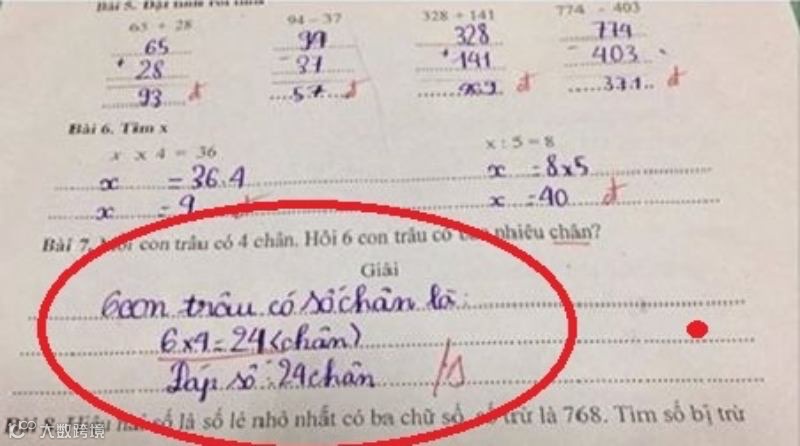 Bài 5. Đặt tính rồi tính
65 + 28 94 – 37 328 + 141 774 - 403
65 94 328 774
+ 28 - 37 + 141 - 403
93 đ 57 đ 469 đ 371 đ
Bài 6. Tìm x
x x 4 = 36 x : 5 = 8
x = 36:4 x = 8x5
x = 9 đ x = 40 đ
Bài 7. Mỗi con trâu có 4 chân. Hỏi 6 con trâu có bao nhiêu chân?
Giải
6 con trâu có số chân là:
6x4=24(chân)
Đáp số: 24 chân
Bài 8. Hiệu hai số là số lẻ nhỏ nhất có ba chữ số, số trừ là 768. Tìm số bị trừ
大数跨境